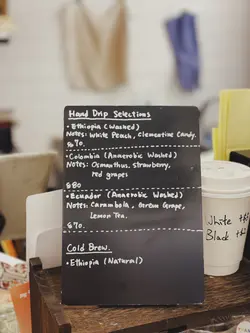 Hand Drip Selections
• Ethiopia (Washed)
Notes: White Peach, Clementine Candy.
$70.
• Colombia (Anaerobic Washed)
Notes: Osmanthus, strawberry,
red grapes
$80
• Ecuador (Anaerobic Washed)
Notes: Carambola, Green Grape,
Lemon Tea.
$70.
Cold Brew.
• Ethiopia (Natural)
White
Black